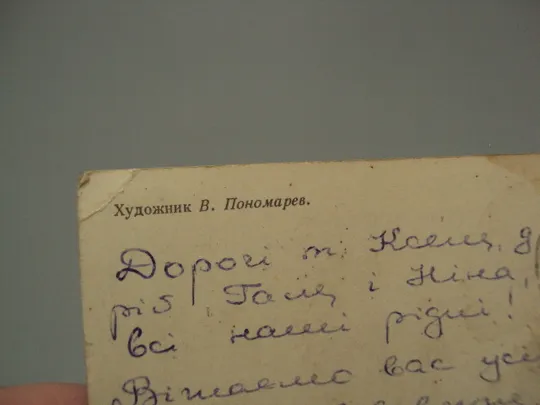 Художник В. Пономарев.
Дорогі т. Ксеня, д
ріб, Галя і Ніна,
всі наші рідні!
Вітаємо вас усі